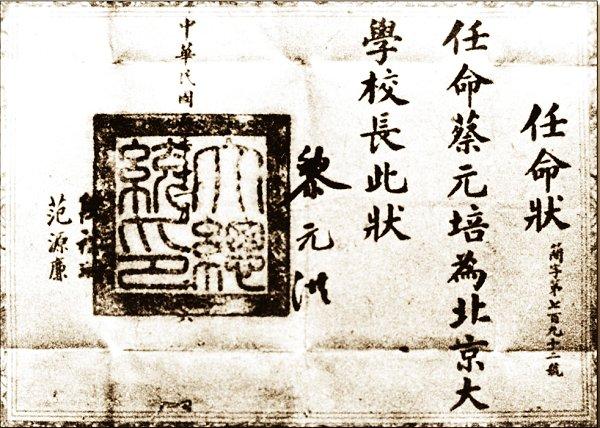 任命狀
簡字第七百九十二號
任命蔡元培為北京大
學校長此狀
黎元洪
大總
統印
中華民國
六
祺瑞
范源廉